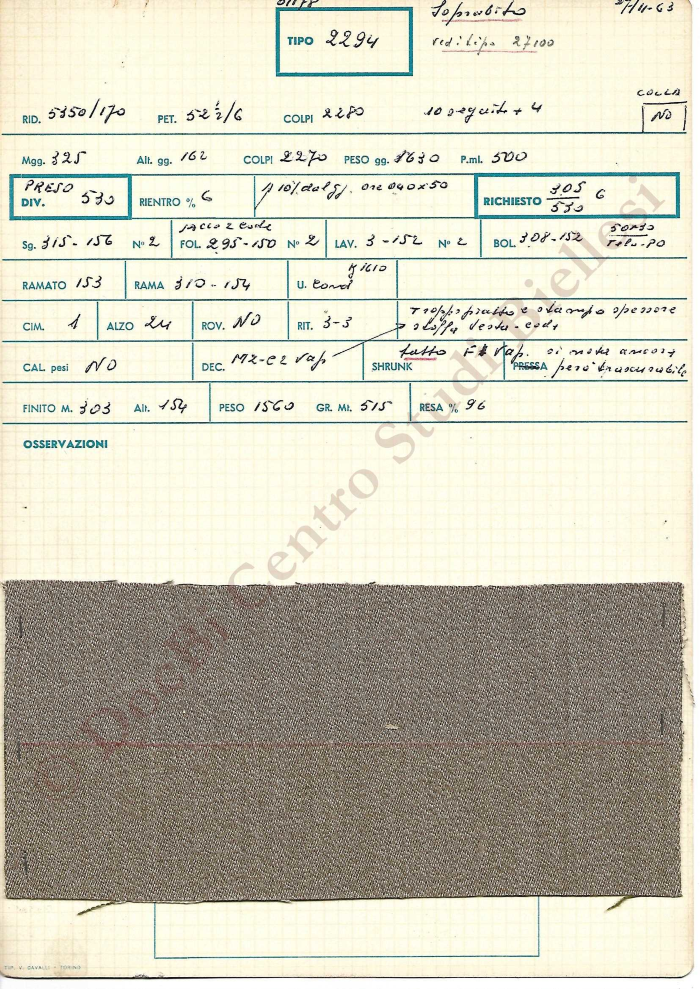 Soprabito 27/11-63
TIPO 2294 vedi tipo 27100
COLLA
RID. 5350/170 PET. 52 ½/6 COLPI 2280 10 seguito + 4 NO
Mgg. 325 Alt. gg. 162 COLPI 2270 PESO gg. 1630 P.ml. 500
PRESO
DIV. 530 RIENTRO % 6 RICHIESTO 305/530 6
sacco 2 code
Sg. 315-156 N° 2 FOL. 295-150 N° 2 LAV. 3-152 N° 2 BOL. 308-152
RAMATO 153 RAMA 310-154 U. Cond
troppo piatto e stampo spessore
CIM. 1 ALZO 24 ROV. NO RIT. 3-3 stoffa testa-code
CAL. pesi NO DEC. M2-C2 Vap SHRUNK fatto Vap. si nota ancora
PRESSA però trascurabile
FINITO M. 303 Alt. 154 PESO 1560 GR. Mt. 515 RESA % 96
OSSERVAZIONI
© DocBi Centro Studi Biellesi
TIP. V. CAVALLI - TORINO